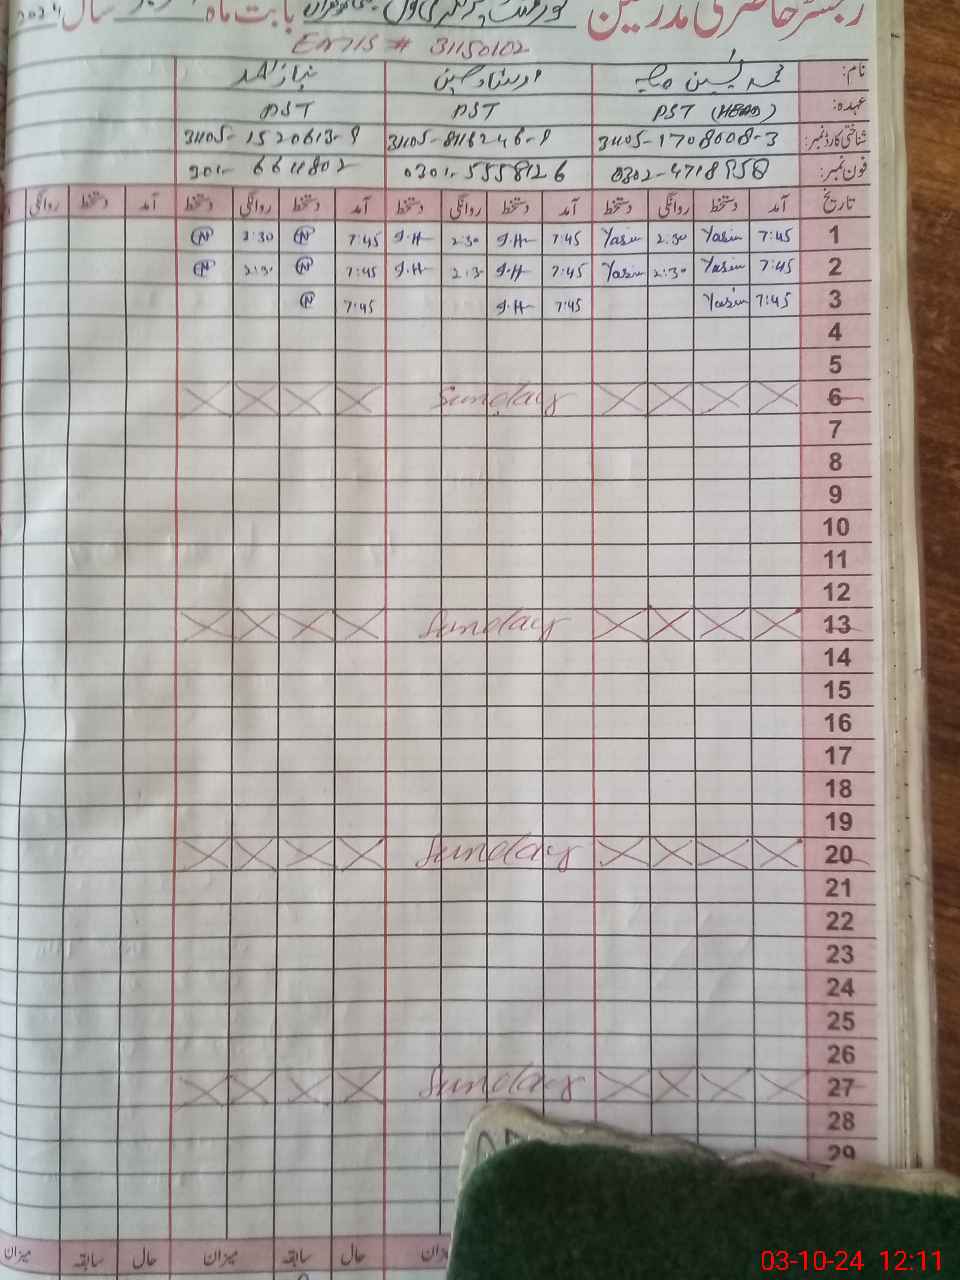 رجسٹر حاضری مدرسین گورنمنٹ پرائمری سکول بابت ماہ سال 2024
EMIS # 31150102
نام: محمد یٰسین نیاز احمد
عہدہ: PST (HEAD) PST PST
شناختی کارڈ نمبر: 31105-1708608-3 31105-8116246-9 31105-1520613-9
فون نمبر: 0302-4718958 0301-5558126 301-6611802
تاریخ آمد دستخط روانگی دستخط آمد دستخط روانگی دستخط آمد دستخط روانگی دستخط آمد دستخط روانگی
1 7:45 Yasin 2:30 Yasin 7:45 I.H 2:30 I.H 7:45 N 2:30 N
2 7:45 Yasin 2:30 Yasin 7:45 I.H 2:3 I.H 7:45 N 2:30 N
3 7:45 Yasin 7:45 I.H 7:45 N
4
5
6 Sunday
7
8
9
10
11
12
13 Sunday
14
15
16
17
18
19
20 Sunday
21
22
23
24
25
26
27 Sunday
28
29
میزان حال سابقہ میزان حال سابقہ میزان
03-10-24 12:11